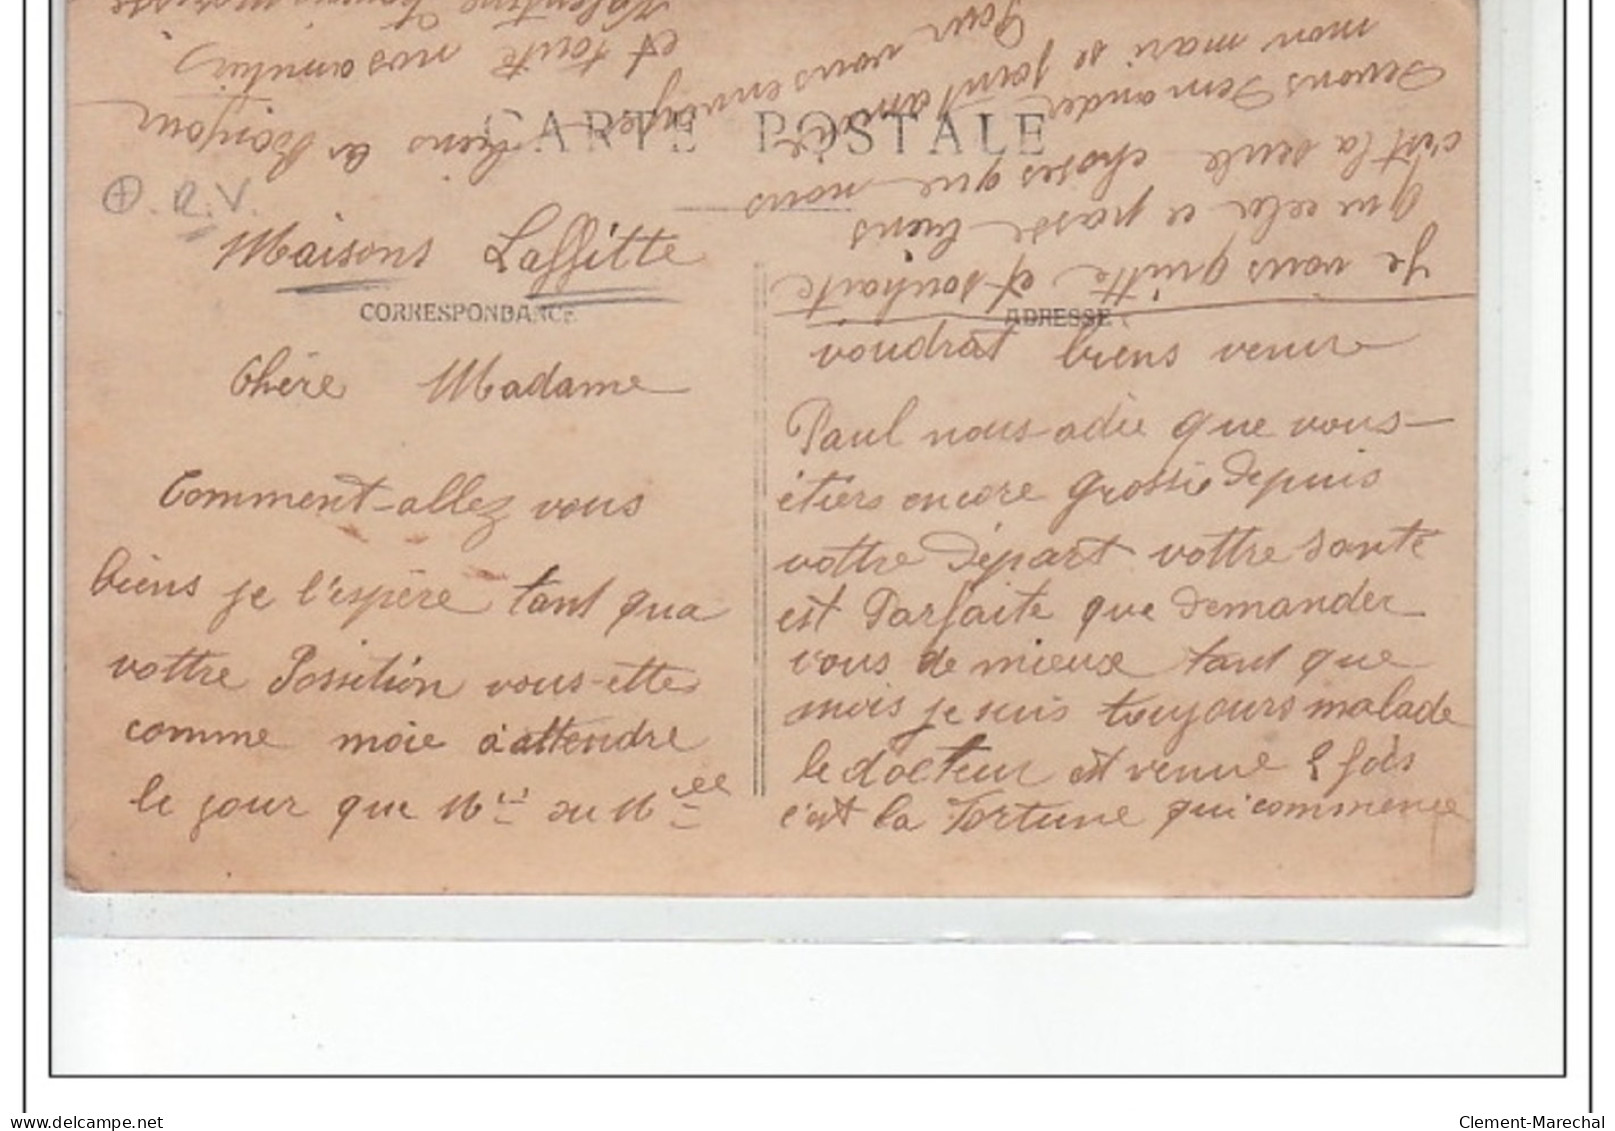 CARTE POSTALE
R.V.
Maisons Laffitte
CORRESPONDANCE
Chère Madame
Comment-allez vous
biens je l'espère tant qua
vottre Possition vous-ettes
comme moie a attendre
le jour que Mr ou Mlle
ADRESSE
voudrat biens venir
Paul nous-adie que vous-
étiers encore grossie depuis
vottre départ vottre santé
est Parfaite que demander
vous de mieux tant que
mois je suis toujours malade
le docteur est venue 2 fois
c'est la Tortune qui commence
Je vous quitte et souhaite
que cela ce passe biens
c'est la seule choses que nous
devons demander
mon mari se joint a moi
pour vous envoyer
biens le Bonjour
et toute nos amitiés
Valentine